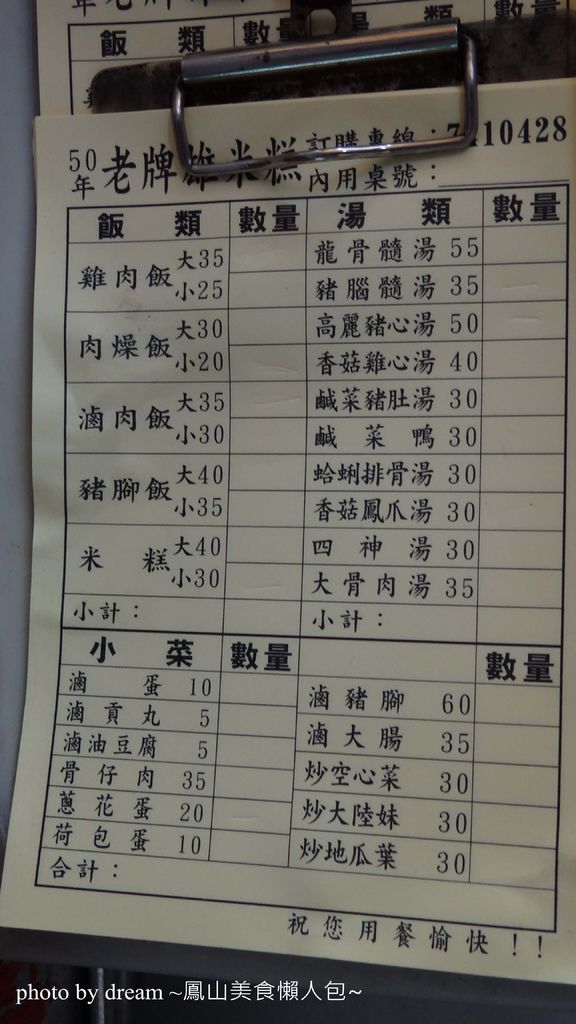 飯 類 數量 類 數量
50年老牌雄米糕 訂購專線：7 10428
內用桌號：
飯 類 數量 湯 類 數量
雞肉飯 大35 龍骨髓湯 55
小25 豬腦髓湯 35
肉燥飯 大30 高麗豬心湯 50
小20 香菇雞心湯 40
滷肉飯 大35 鹹菜豬肚湯 30
小30 鹹菜鴨 30
豬腳飯 大40 蛤蜊排骨湯 30
小35 香菇鳳爪湯 30
米糕 大40 四神湯 30
小30 大骨肉湯 35
小計： 小計：
小菜 數量 數量
滷蛋 10 滷豬腳 60
滷貢丸 5 滷大腸 35
滷油豆腐 5 炒空心菜 30
骨仔肉 35 炒大陸妹 30
蔥花蛋 20 炒地瓜葉 30
荷包蛋 10
合計：
祝您用餐愉快!!
photo by dream ~鳳山美食懶人包~